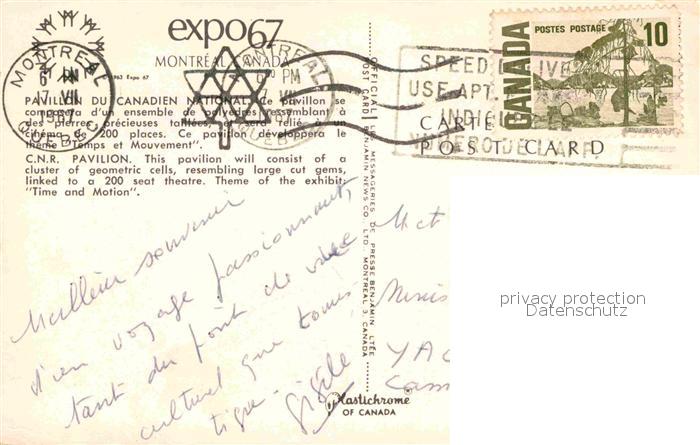 expo67
MONTRÉAL CANADA
1963 Expo 67
PAVILLON DU CANADIEN NATIONAL. Ce pavillon se
composera d'un ensemble de polyèdres ressemblant à
des pierres précieuses taillées, et sera relié au
cinéma de 200 places. Ce pavillon développera le
thème "Temps et Mouvement".
C.N.R. PAVILION. This pavilion will consist of a
cluster of geometric cells, resembling large cut gems,
linked to a 200 seat theatre. Theme of the exhibit:
"Time and Motion".
MONTREAL
PM
17 VII
1967
QUEBEC
MONTREAL
PM
VII
QUEBEC
POSTES POSTAGE
10
CANADA
SPEED DELIVE
USE APT.
INDI
CARTE
POST CARD
Meilleur souvenir
d'un voyage passionnant,
tant du point de vue
culturel que touris
tique-
Gisèle
OFFICIAL POST CARD
LES MESSAGERIES DE PRESSE BENJAMIN LTÉE
BENJAMIN NEWS CO. LTD. - MONTREAL 3, CANADA
Plastichrome
OF CANADA
M et
YAC
Cam
privacy protection
Datenschutz